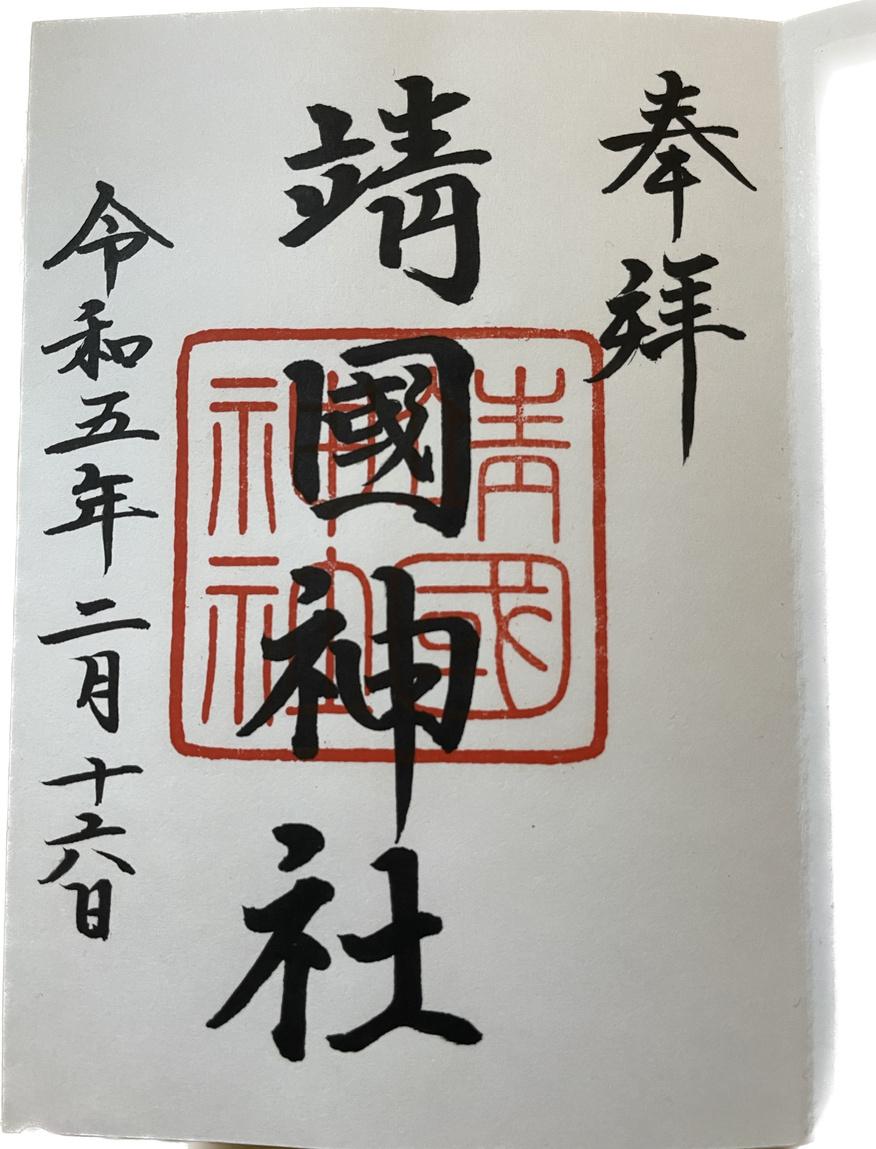 奉拝
靖國神社
靖國神社
令和五年二月十六日